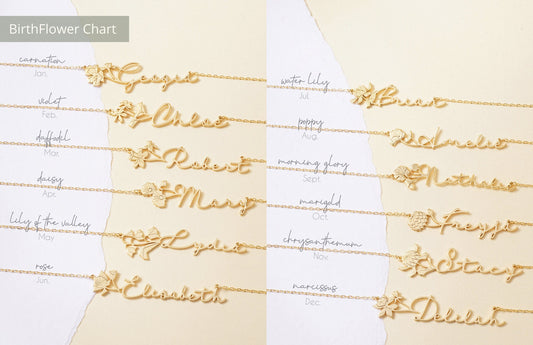 BirthFlower Chart
carnation
Jan.
violet
Feb.
Chloe
daffodil
Mar.
Robert
daisy
Apr.
Mary
lily of the valley
May
Lydia
rose
Jun.
Elizabeth
water lily
Jul.
Brian
poppy
Aug.
Amelia
morning glory
Sept.
Nathalie
marigold
Oct.
Freyja
chrysanthemum
Nov.
Stacy
narcissus
Dec.
Delilah